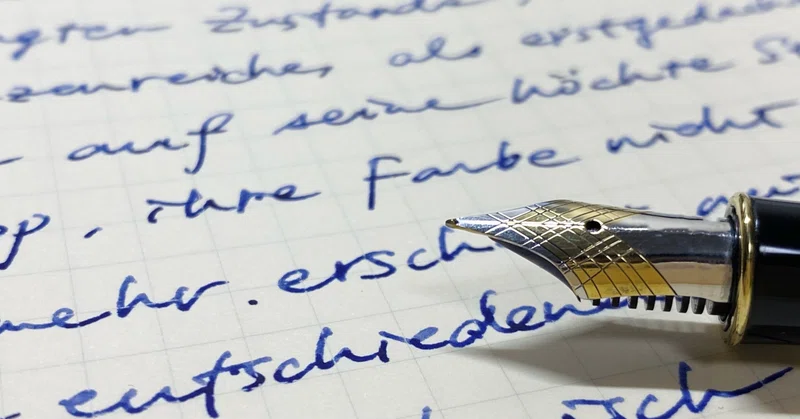 ngten Zustande,
zenreicher, als erstgedach
auf seine höchte S
pp. ihre Farbe nicht
mehr. ersch
entschieden
isch